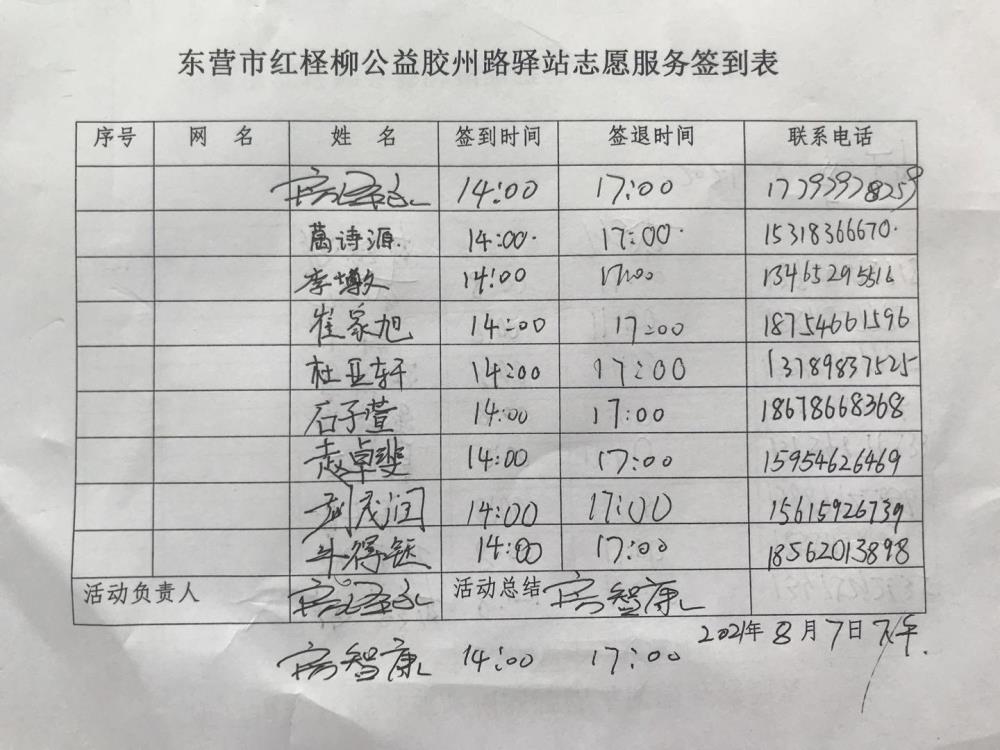 东营市红柽柳公益胶州路驿站志愿服务签到表
序号 网名 姓名 签到时间 签退时间 联系电话
14:00 17:00 17793978259
万诗源. 14:00. 17:00. 15318366670.
李墩文 14:00 17:00 13465295516
崔家旭 14:00 17:00 18754661596
杜亚轩 14:00 17:00 13789837525
石子萱 14:00 17:00 18678668368
赵卓斐 14:00 17:00 15954626469
刘茂润 14:00 17:00 15615926739
14:00 17:00 18562013898
活动负责人 活动总结 房智康
2021年8月7日下午.
房智康 14:00 17:00